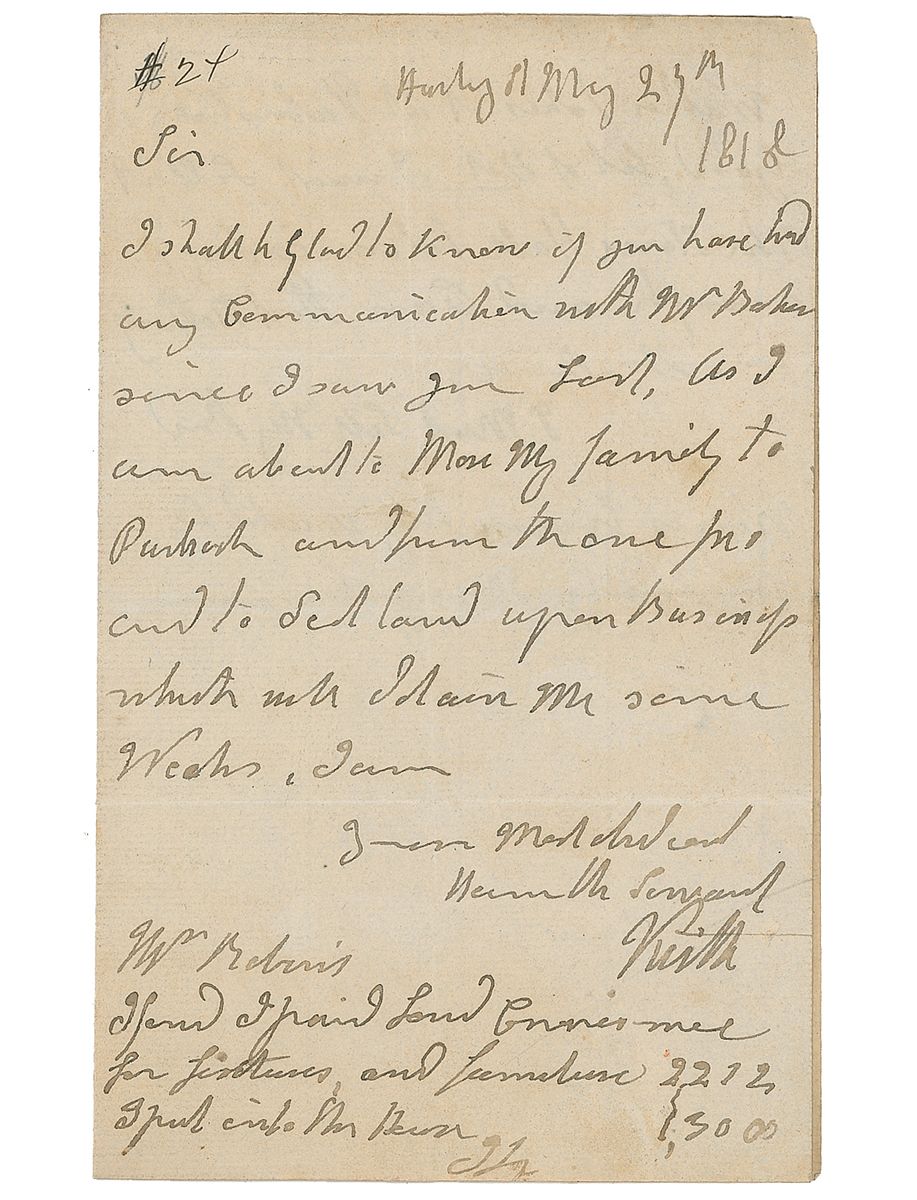 #24
Harley St May 27th
1818
Sir
I shall be Glad to Know if you have had
any Communication with Mr Baker
since I saw you Last, As I
am about to Move My family to
Purbrook and from thence pro
ceed to Scotland upon Business
which will detain Me some
Weeks, I am
your Most obedient
Humble Servant
Keith
Mr Robins
I find I paid Lord Ennismee
for fixtures, and furniture 2212
I put into the House 3000